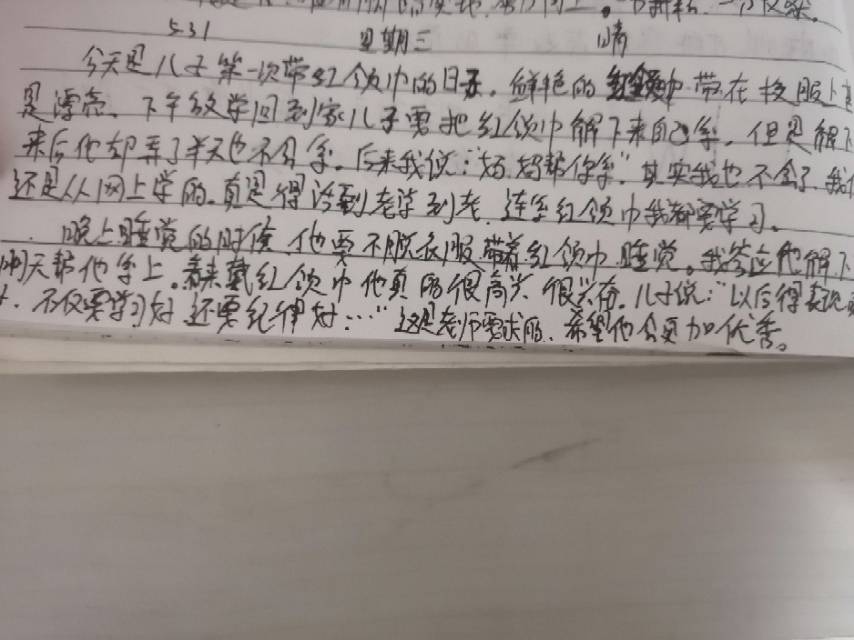 一分收获。
5.31 星期三 晴
今天是儿子第一次带红领巾的日子。鲜艳的红领巾带在校服上真
是漂亮。下午放学回到家儿子要把红领巾解下来自己系，但是解下
来后他却弄了半天也不会系。后来我说：“妈妈帮你系”其实我也不会了，我
还是从网上学的。真是得活到老学到老，连系红领巾我都要学习。
晚上睡觉的时候，他要不脱衣服带着红领巾睡觉。我答应他解下
明天帮他系上。看来戴红领巾他真的很高兴很兴奋。儿子说：“以后得表现
不仅要学习好还要纪律好…”这是老师要求的、希望他会更加优秀。